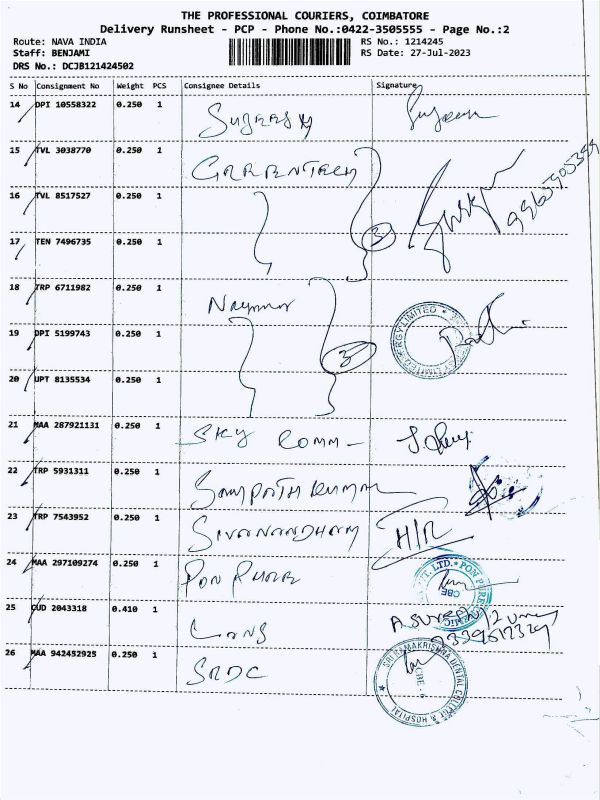 THE PROFESSIONAL COURIERS, COIMBATORE
Delivery Runsheet - PCP - Phone No.:0422-3505555 - Page No.:2
Route: NAVA INDIA RS No.: 1214245
Staff: BENJAMI RS Date: 27-Jul-2023
DRS No.: DCJB121424502
S No Consignment No Weight PCS Consignee Details Signature
14 DPI 10558322 0.250 1
15 TVL 3038770 0.250 1 GREENTECH
16 TVL 8517527 0.250 1
17 TEN 7496735 0.250 1 3
18 TRP 6711982 0.250 1
19 DPI 5199743 0.250 1 3
20 UPT 8135534 0.250 1
21 MAA 287921131 0.250 1 SKY COMM -
22 TRP 5931311 0.250 1 SAMPATH KUMAR
23 TRP 7543952 0.250 1 SIVANANDHAM H/R
24 MAA 297109274 0.250 1 PON PURE
25 CUD 2043318 0.410 1
26 MAA 942452925 0.250 1 SRDC
SRI RAMAKRISHNA DENTAL COLLEGE & HOSPITAL
CBE - 6